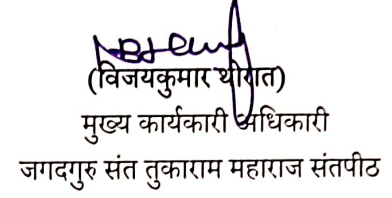 (विजयकुमार थोरात)
मुख्य कार्यकारी अधिकारी
जगदगुरु संत तुकाराम महाराज संतपीठ